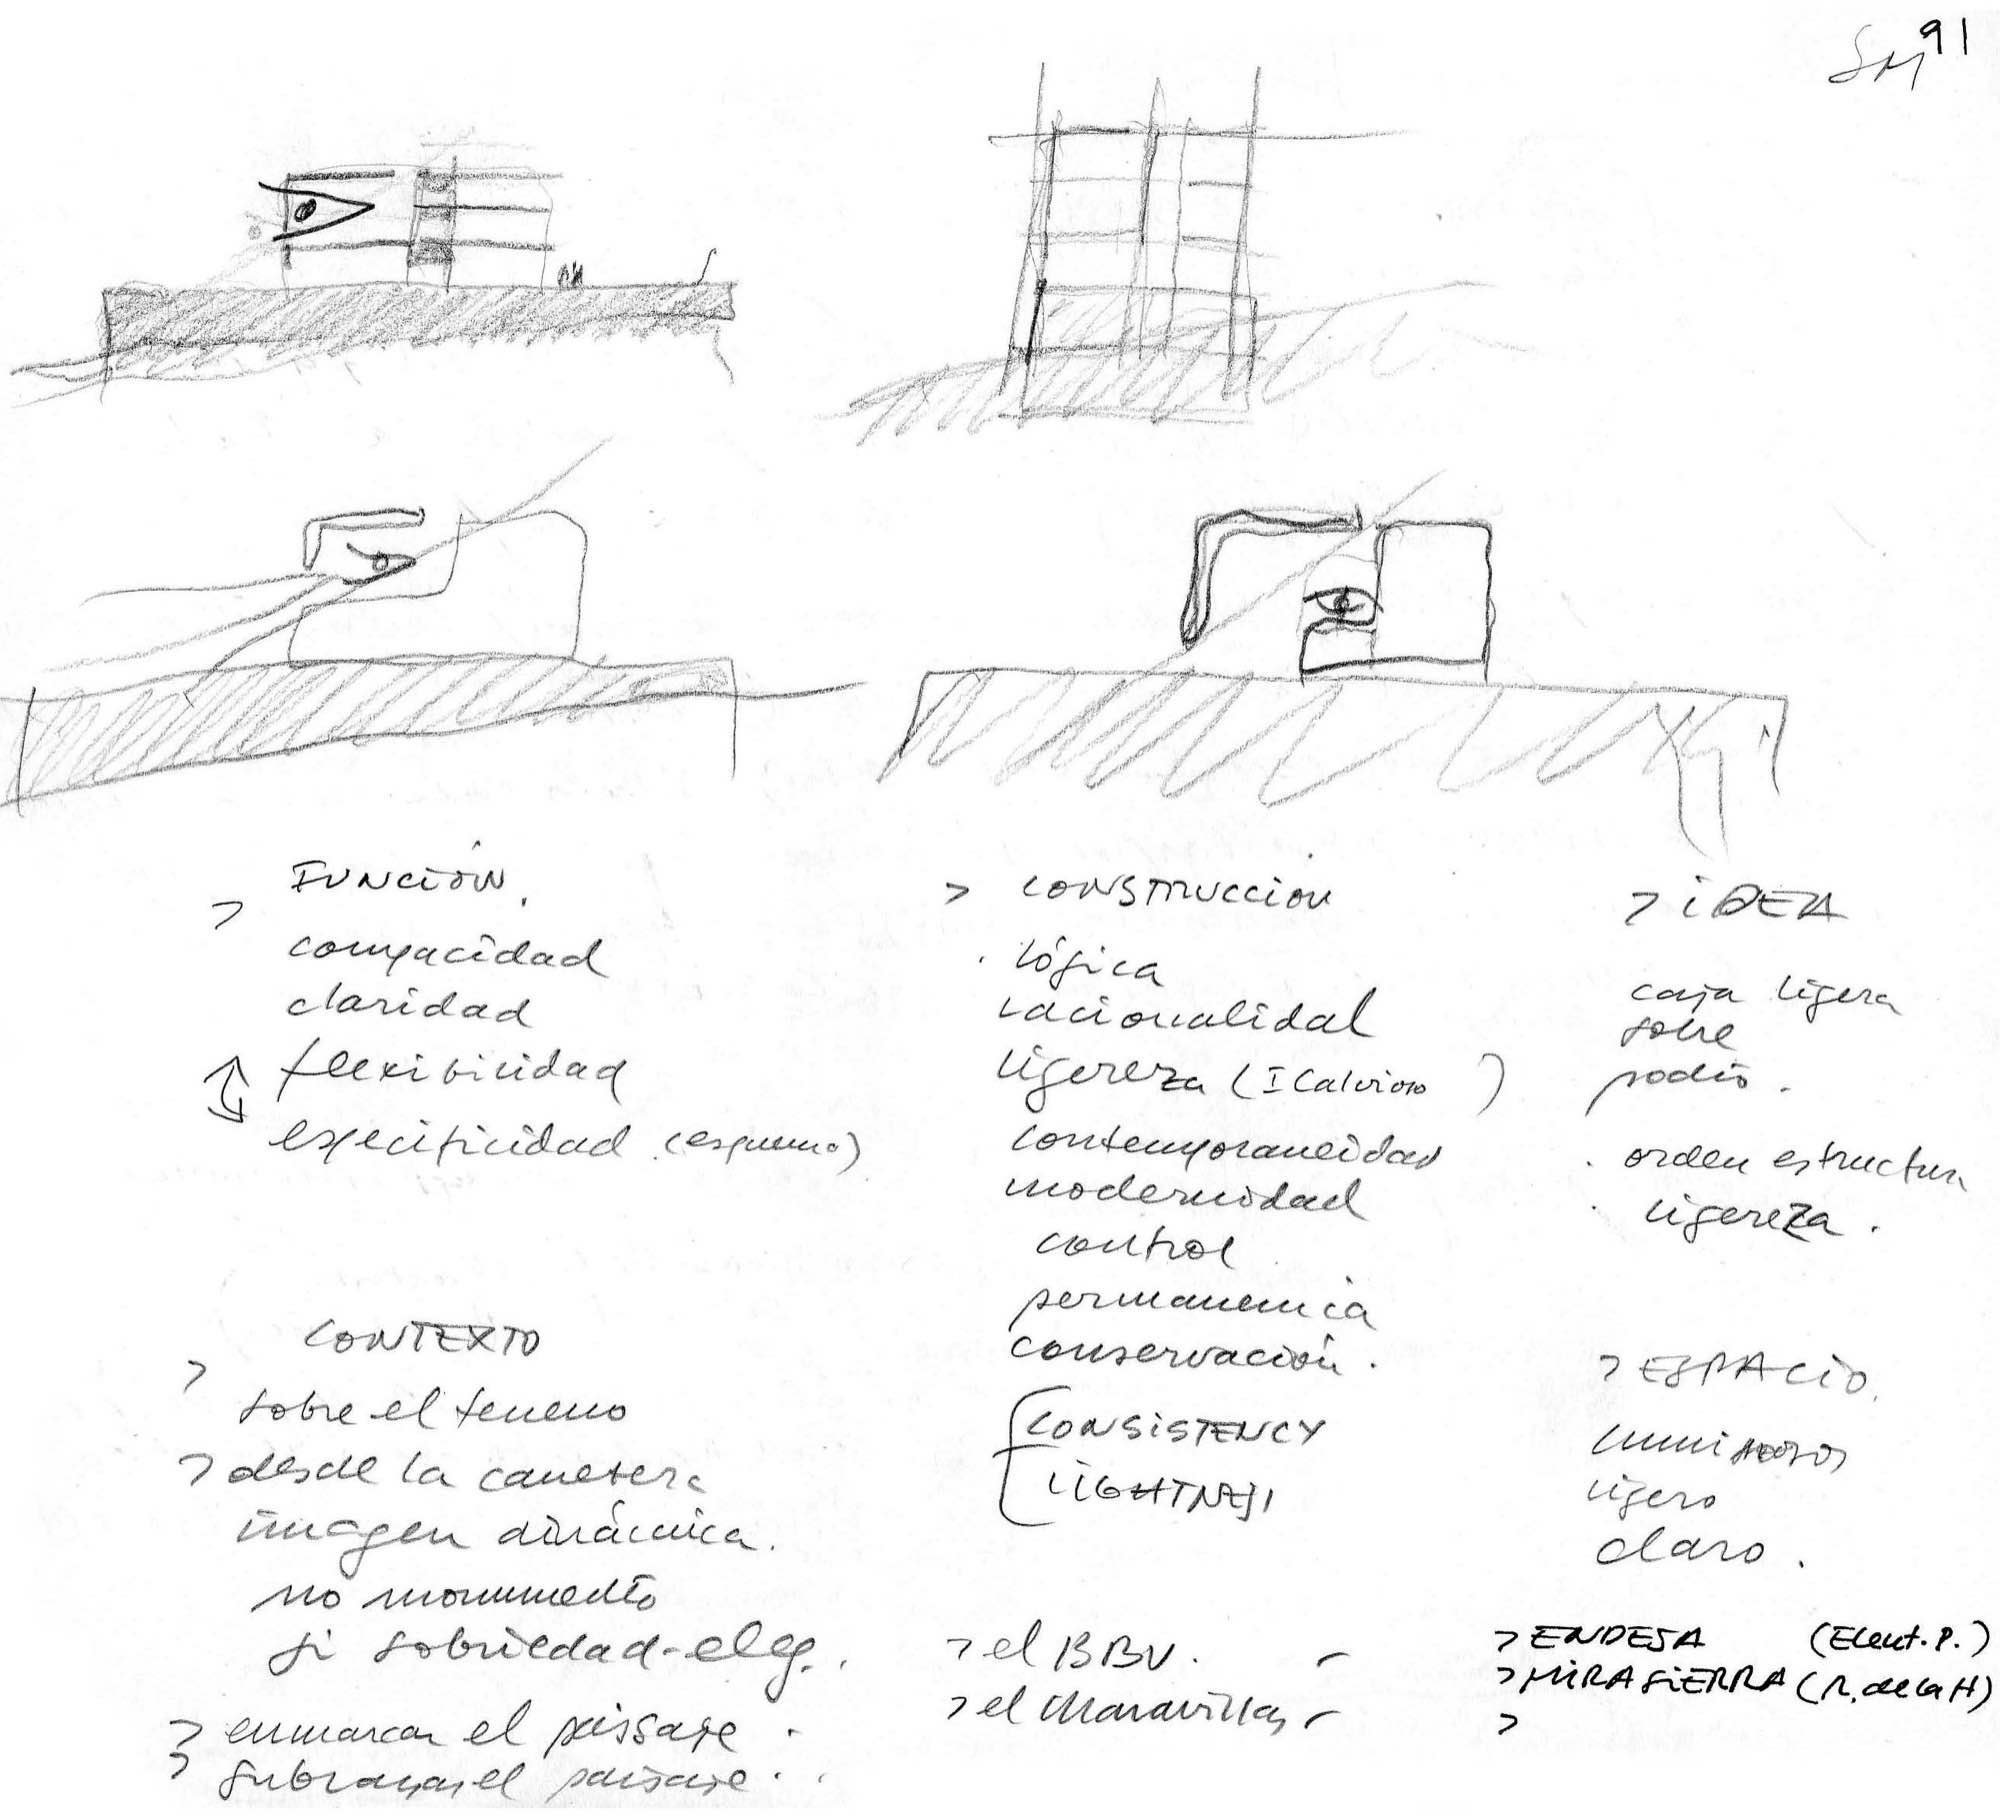 SM 91
> FUNCIÓN.
compacidad
claridad
flexibilidad
especificidad (esquema)
CONTEXTO
>
sobre el terreno
> desde la carretera
imagen dinámica.
no monumento
si sobriedad-eleg.
> enmarcar el paisaje.
> subrayar el paisaje.
> CONSTRUCCION
. lógica
racionalidad
ligereza (I Calvino)
contemporaneidad
modernidad
control
permanencia
conservación.
CONSISTENCY
LIGHTNESS
> el BBV.
> el Maravillas
> IDEA
caja ligera
sobre
podio.
. orden estructura
. ligereza.
> ESPACIO.
luminosos
ligero
claro.
> ENDESA (Elect. P.)
> MIRASIERRA (R. de la H)
>